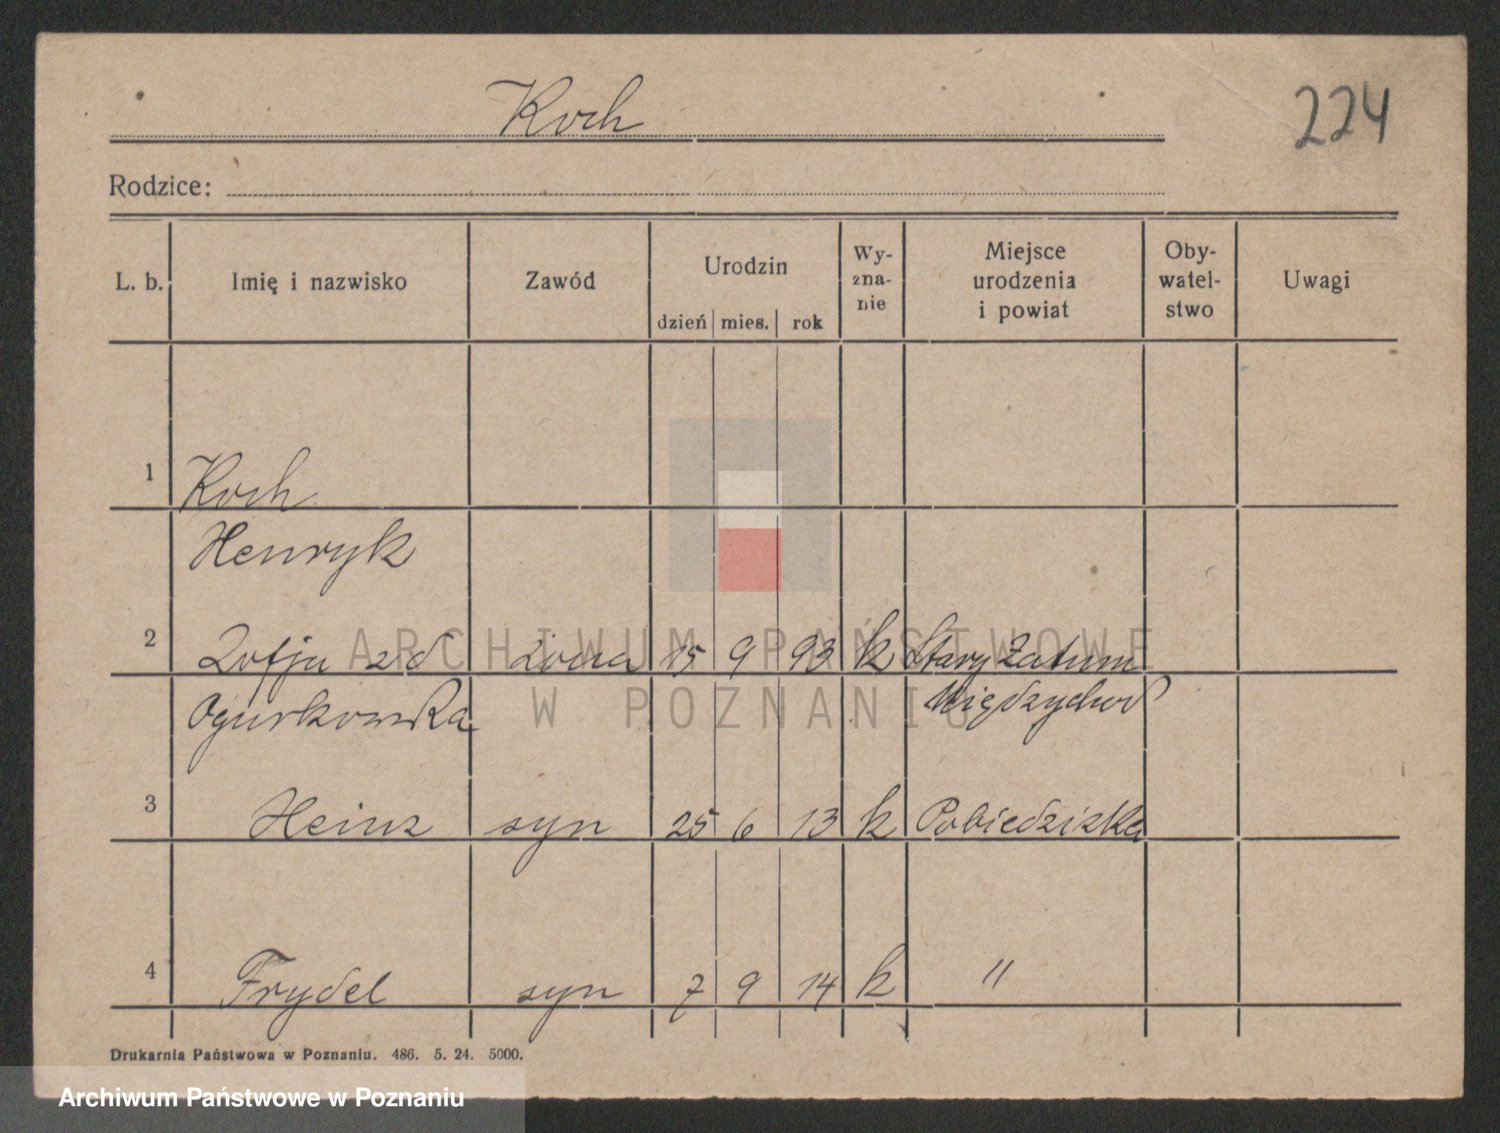 Koch
224
Rodzice:
L. b. Imię i nazwisko Zawód Urodzin dzień mies. rok Wy-zna-nie Miejsce urodzenia i powiat Oby-watel-stwo Uwagi
1 Koch
Henryk
2 Zofja zd żona 15 9 93 k Stary Zatum
Ogurkowska Międzychod
3 Heinz syn 25 6 13 k Pobiedziska
4 Frydel syn 7 9 14 k "
Drukarnia Państwowa w Poznaniu. 486. 5. 24. 5000.
ARCHIWUM PAŃSTWOWE
W POZNANIU
Archiwum Państwowe w Poznaniu